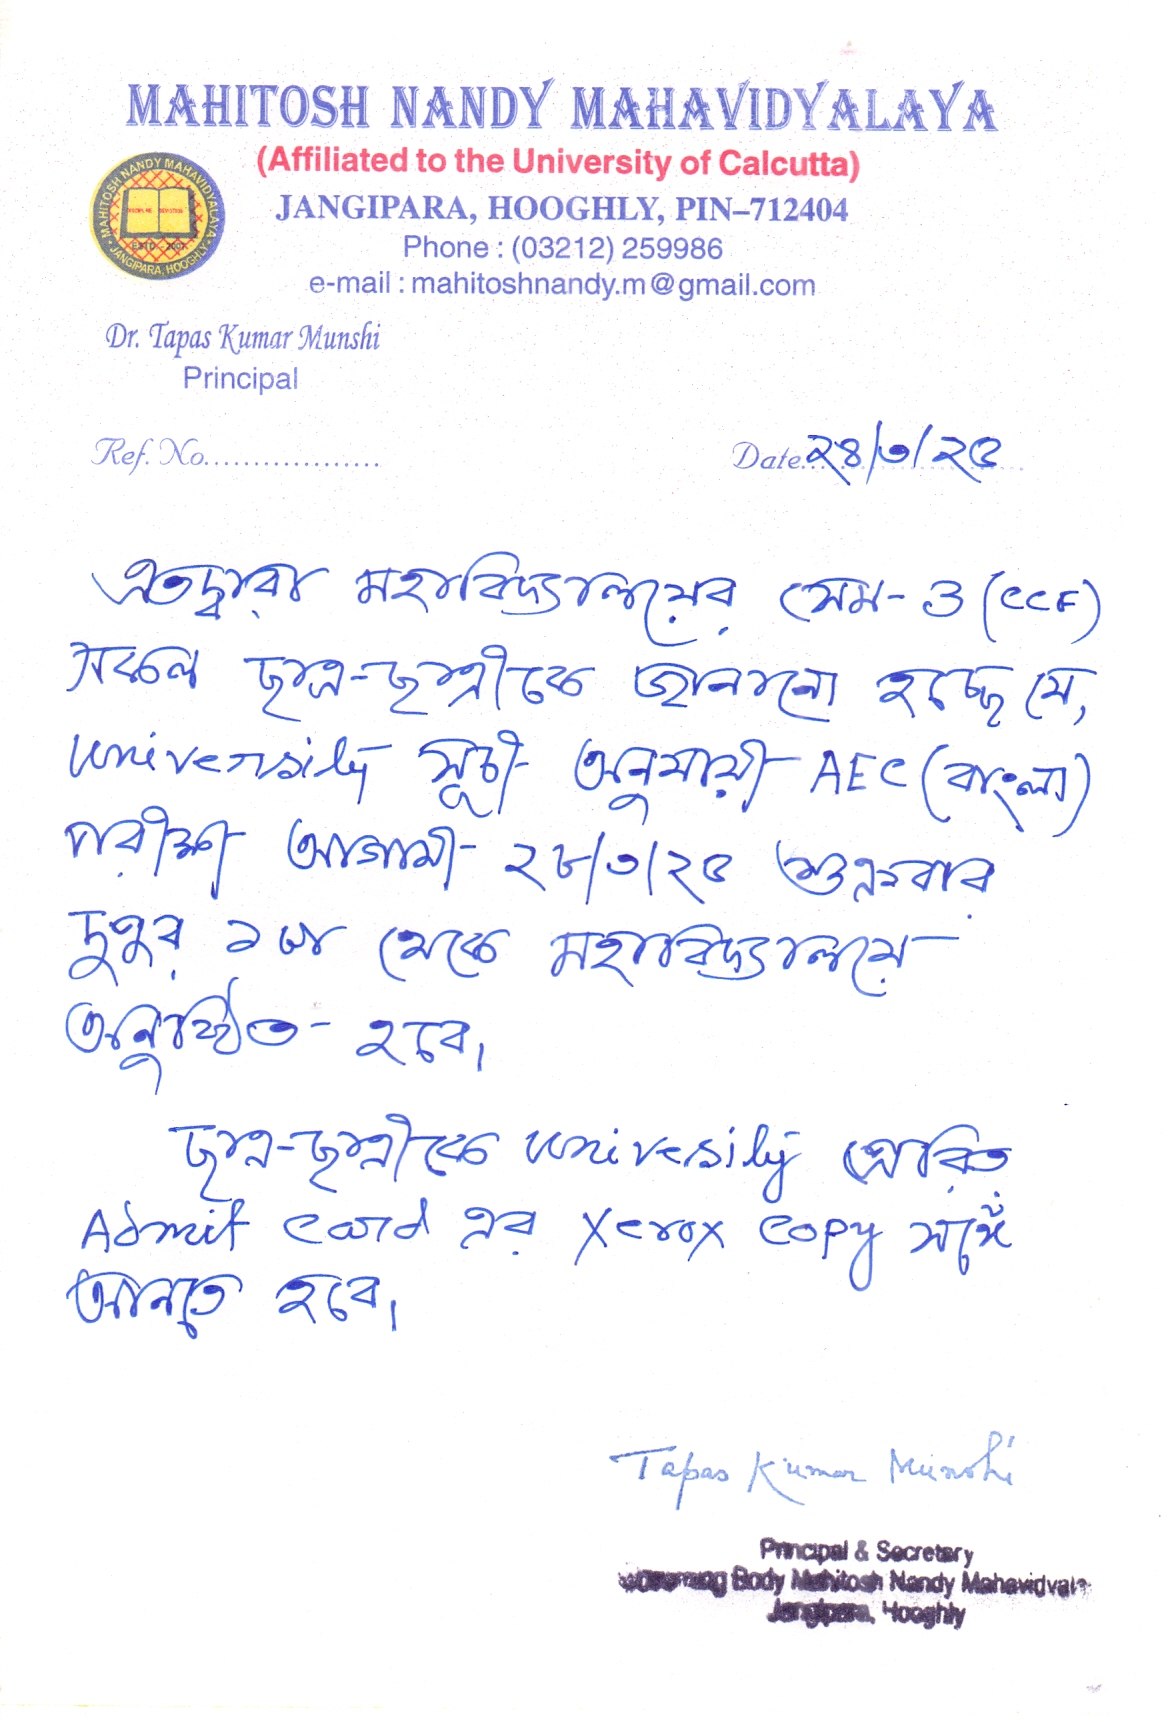 MAHITOSH NANDY MAHAVIDYALAYA
(Affiliated to the University of Calcutta)
JANGIPARA, HOOGHLY, PIN–712404
Phone : (03212) 259986
e-mail : mahitoshnandy.m@gmail.com
MAHITOSH NANDY MAHAVIDYALAYA
ESTD.-2007
JANGIPARA, HOOGHLY
Dr. Tapas Kumar Munshi
Principal
Ref. No..................
Date...২৪/৩/২৫
এতদ্বারা মহাবিদ্যালয়ের সেম-৩ (CCF)
সকল ছাত্র-ছাত্রীকে জানানো হচ্ছে যে,
University সূচী অনুযায়ী AEC (বাংলা)
পরীক্ষা আগামী ২৮/৩/২৫ শুক্রবার
দুপুর ১টা থেকে মহাবিদ্যালয়ে
অনুষ্ঠিত হবে।
ছাত্র-ছাত্রীকে University প্রেরিত
Admit Card এর Xerox copy সঙ্গে
আনতে হবে।
Tapas Kumar Munshi
Principal & Secretary
Body Mahitosh Nandy Mahavidyala
Jangipara, Hooghly